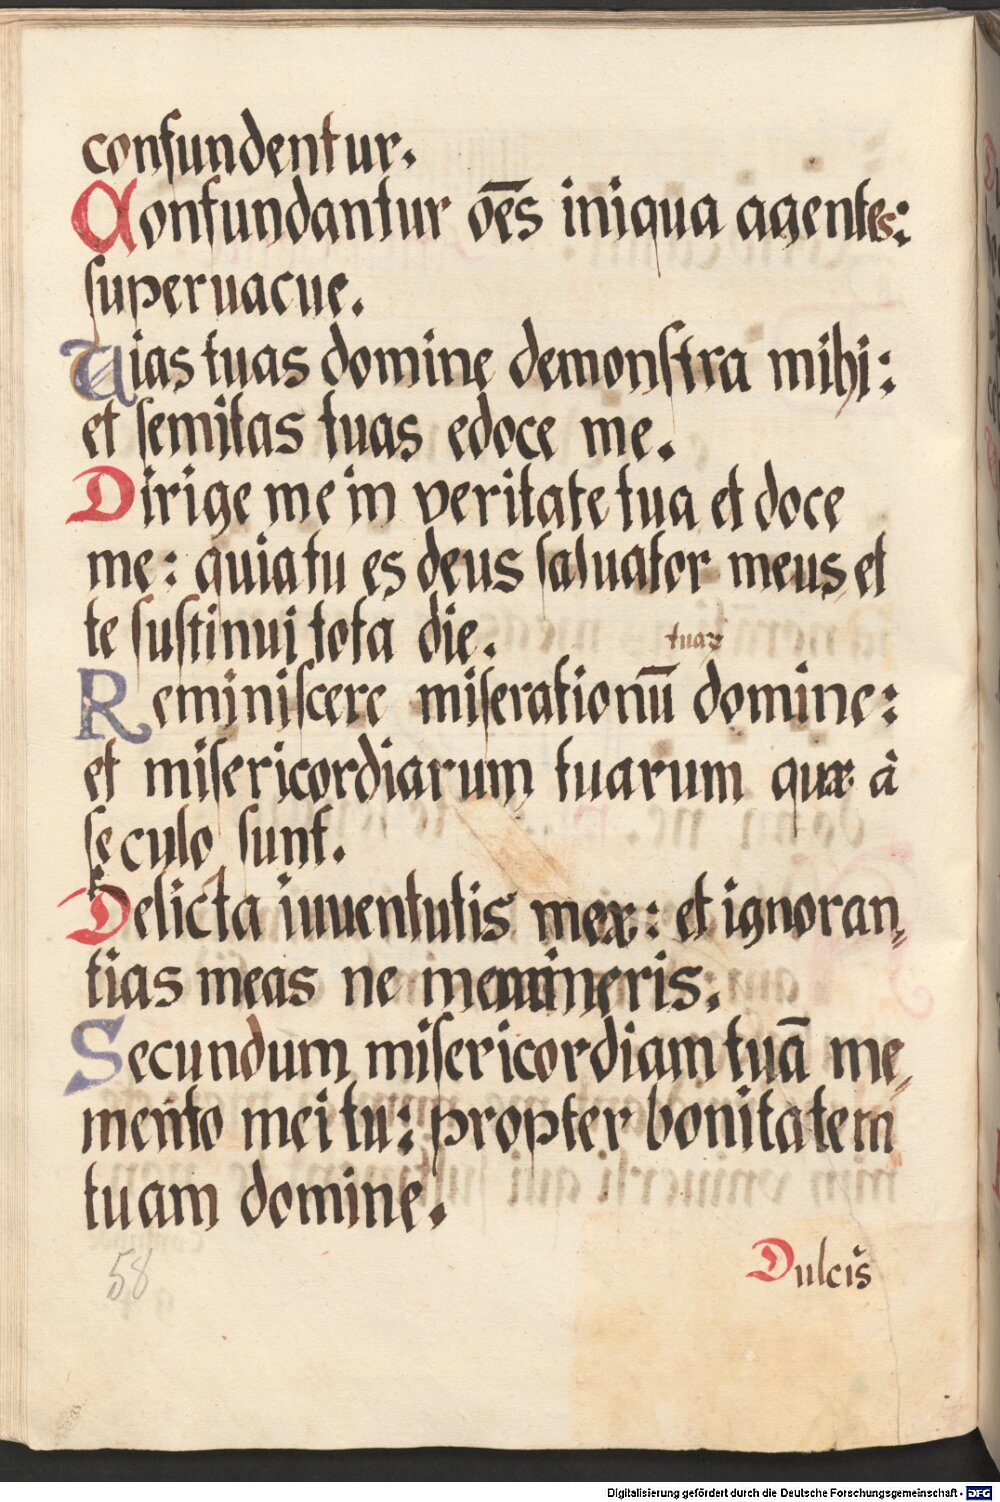 confundentur.
Confundantur oēs iniqua agentes:
superuacue.
Uias tuas domine demonstra mihi:
et semitas tuas edoce me.
Dirige me in veritate tua et doce
me: quia tu es deus saluator meus et
te sustinui tota die.
tuaꝝ
Reminiscere miserationū domine:
et misericordiarum tuarum quæ à
seculo sunt.
Delicta iuuentutis meæ: et ignoran„
tias meas ne memineris.
Secundum misericordiam tuā me„
mento mei tu: propter bonitatem
tuam domine.
Dulcis
58
Digitalisierung gefördert durch die Deutsche Forschungsgemeinschaft - DFG